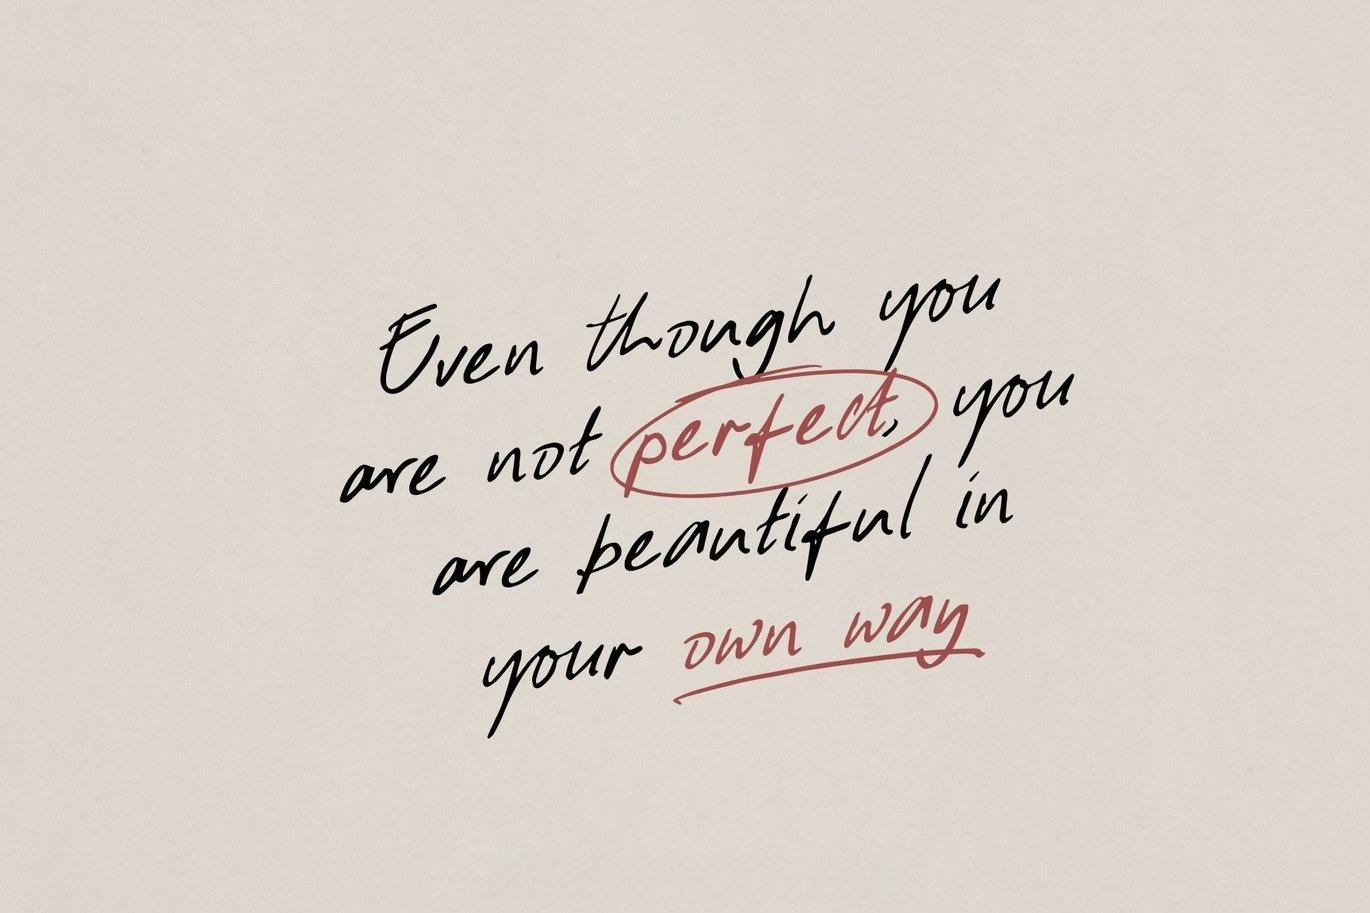 Even though you
are not perfect, you
are beautiful in
your own way